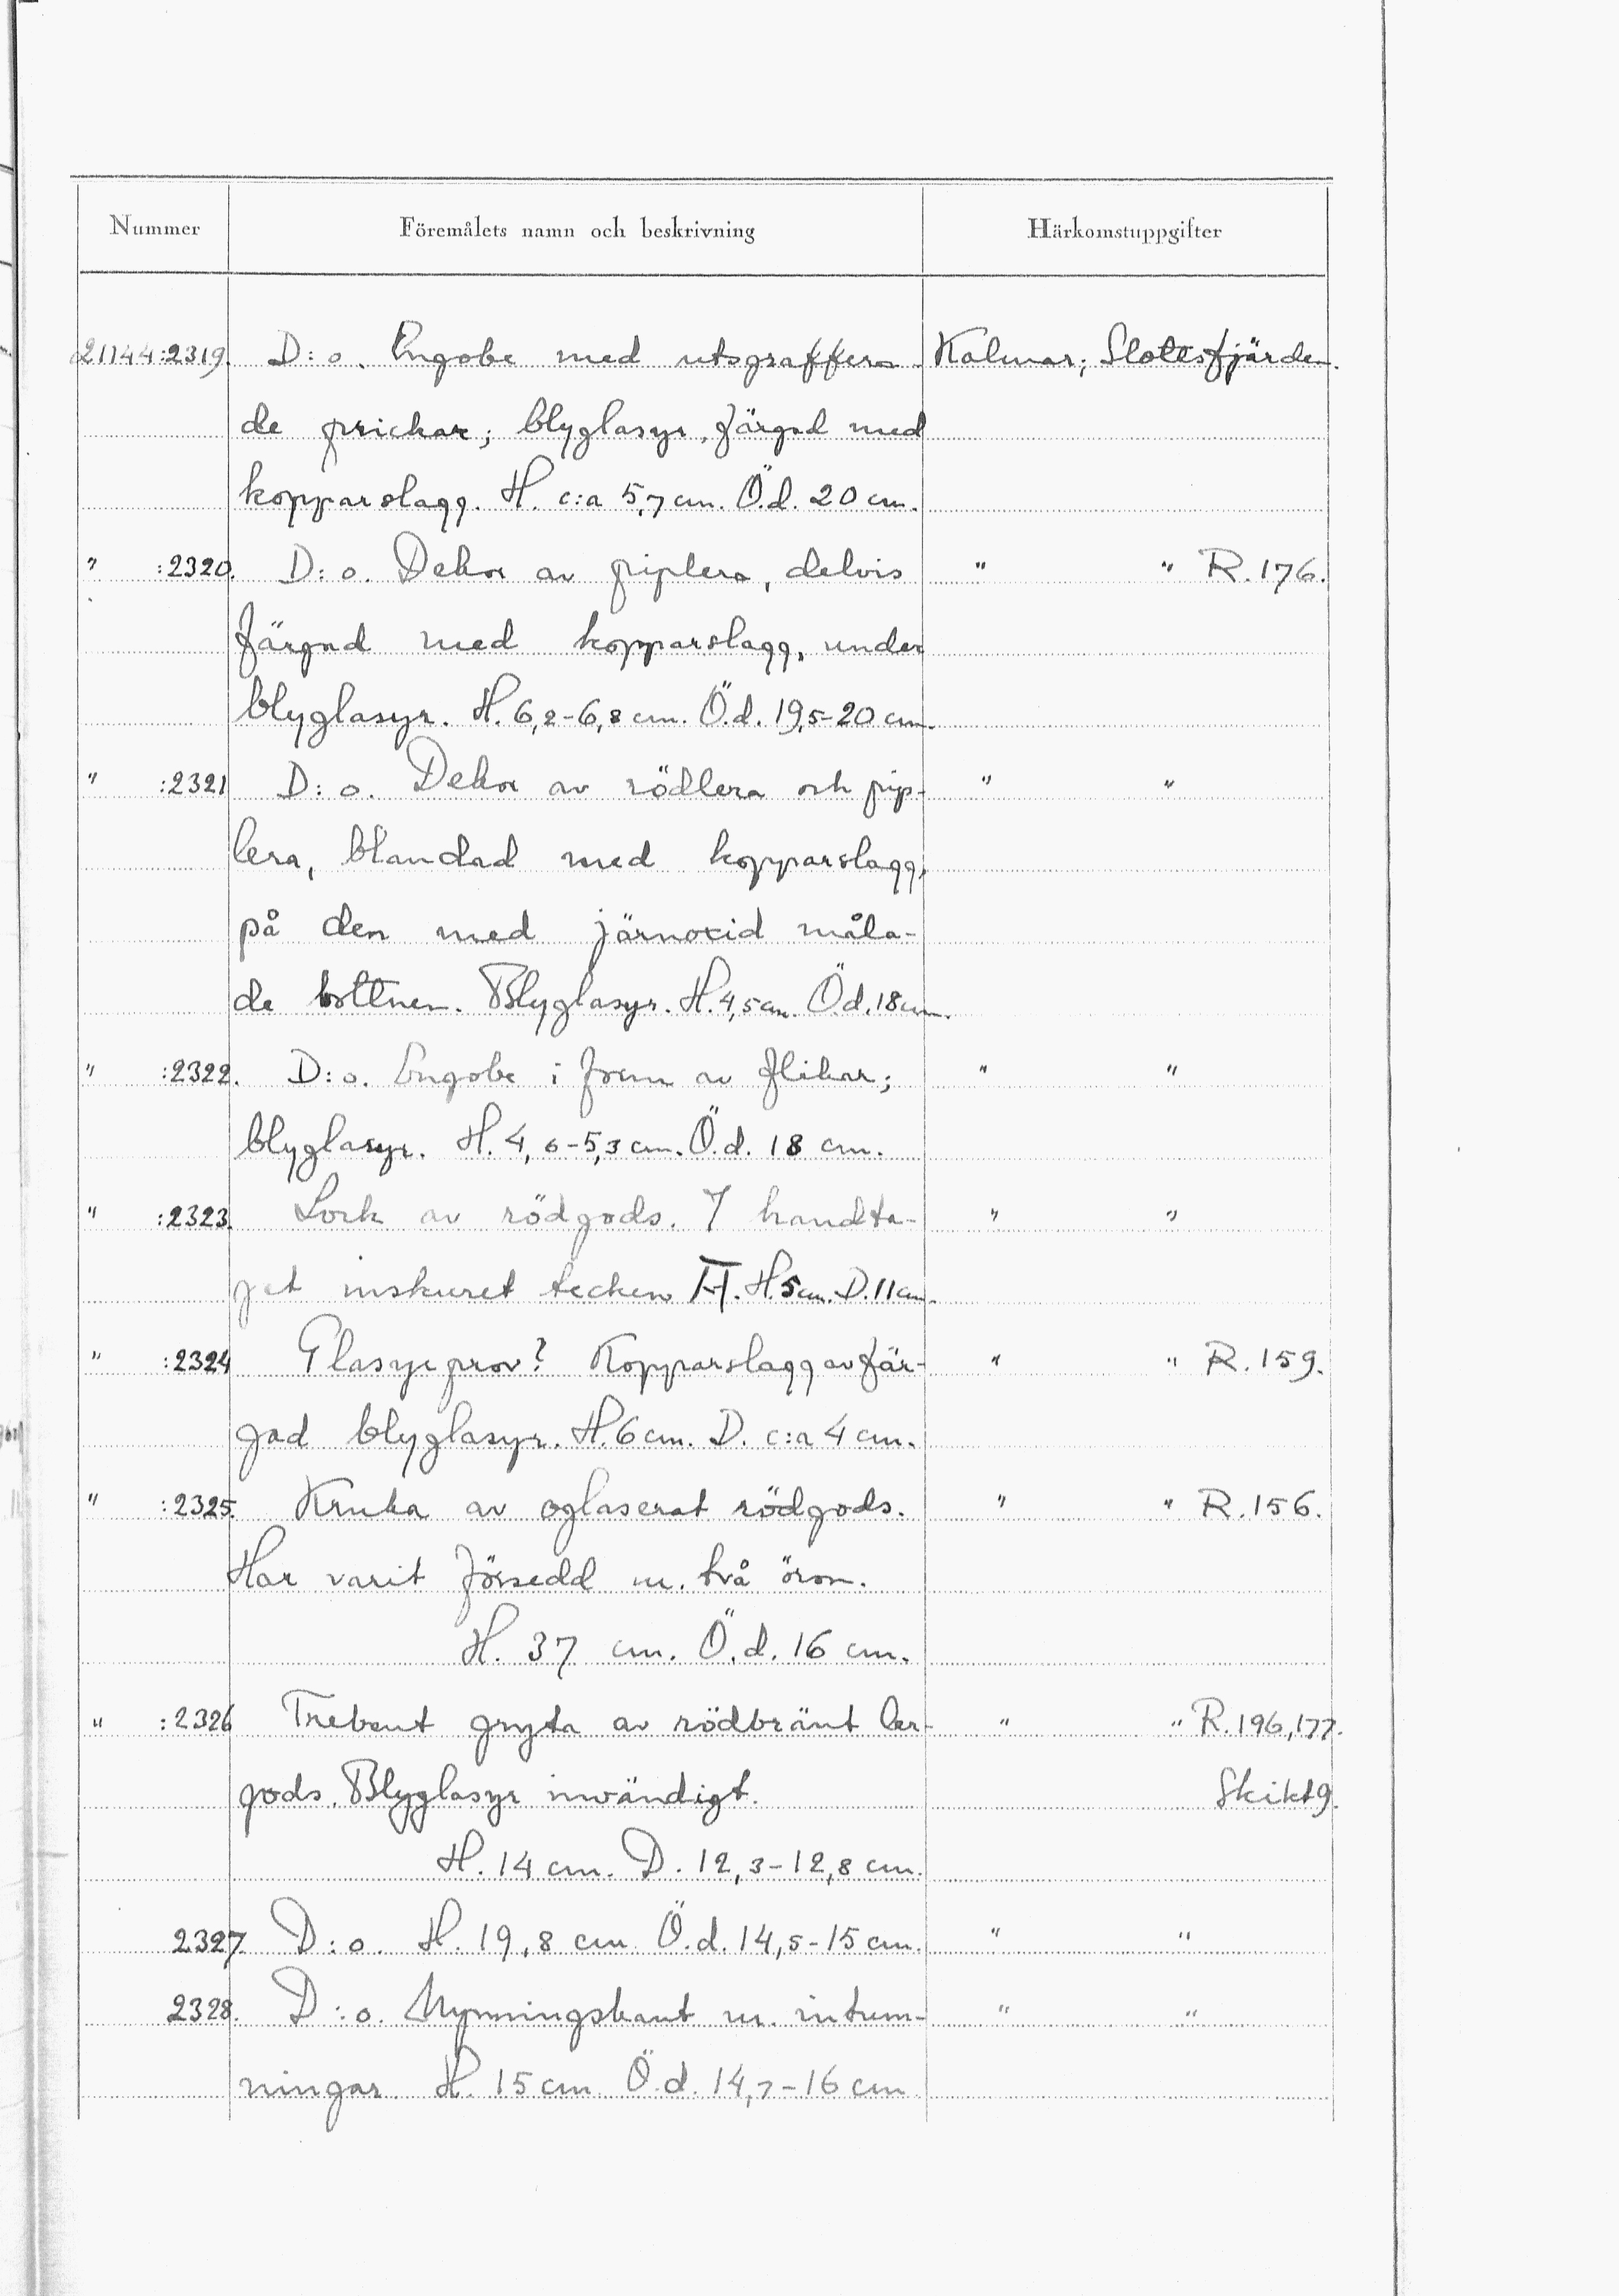 Nummer Föremålets namn och beskrivning Härkomstuppgifter
21144:2319. D:o. Engobe med utsgraffera- Kalmar; Slottsfjärden.
de prickar; blyglasyr, färgad med
kopparslagg. H. c:a 5,7 cm. Ö.d. 20 cm.
" :2320. D:o. Dekor av piplera, delvis " " R.176.
färgad med kopparslagg, under
blyglasyr. H. 6,2-6,8 cm. Ö.d. 19,5-20 cm.
" :2321 D:o. Dekor av rödlera och pip- " "
lera, blandad med kopparslagg,
på den med järnoxid måla-
de bottnen. Blyglasyr. H. 4,5 cm. Ö.d. 18 cm.
" :2322. D:o. Engobe i form av flikar; " "
blyglasyr. H. 4,6-5,3 cm. Ö.d. 18 cm.
" :2323. Lock av rödgods. I handta- " "
get inskuret tecken H. 5 cm. D. 11 cm.
" :2324 Glasyrprov? Kopparslagg av fär- " " R.159.
gad blyglasyr. H. 6 cm. D. c:a 4 cm.
" :2325. Kruka av oglaserat rödgods. " " R.156.
Har varit försedd m. två öron.
H. 37 cm. Ö.d. 16 cm.
" :2326 Trebent gryta av rödbränt ler- " " R.196,177.
gods. Blyglasyr invändigt. Skikt 9.
H. 14 cm. D. 12,3-12,8 cm.
2327 D:o. H. 19,8 cm Ö.d. 14,5-15 cm. " "
2328. D:o. Mynningskant m. intum- " "
ningar. H. 15 cm Ö.d. 14,7-16 cm